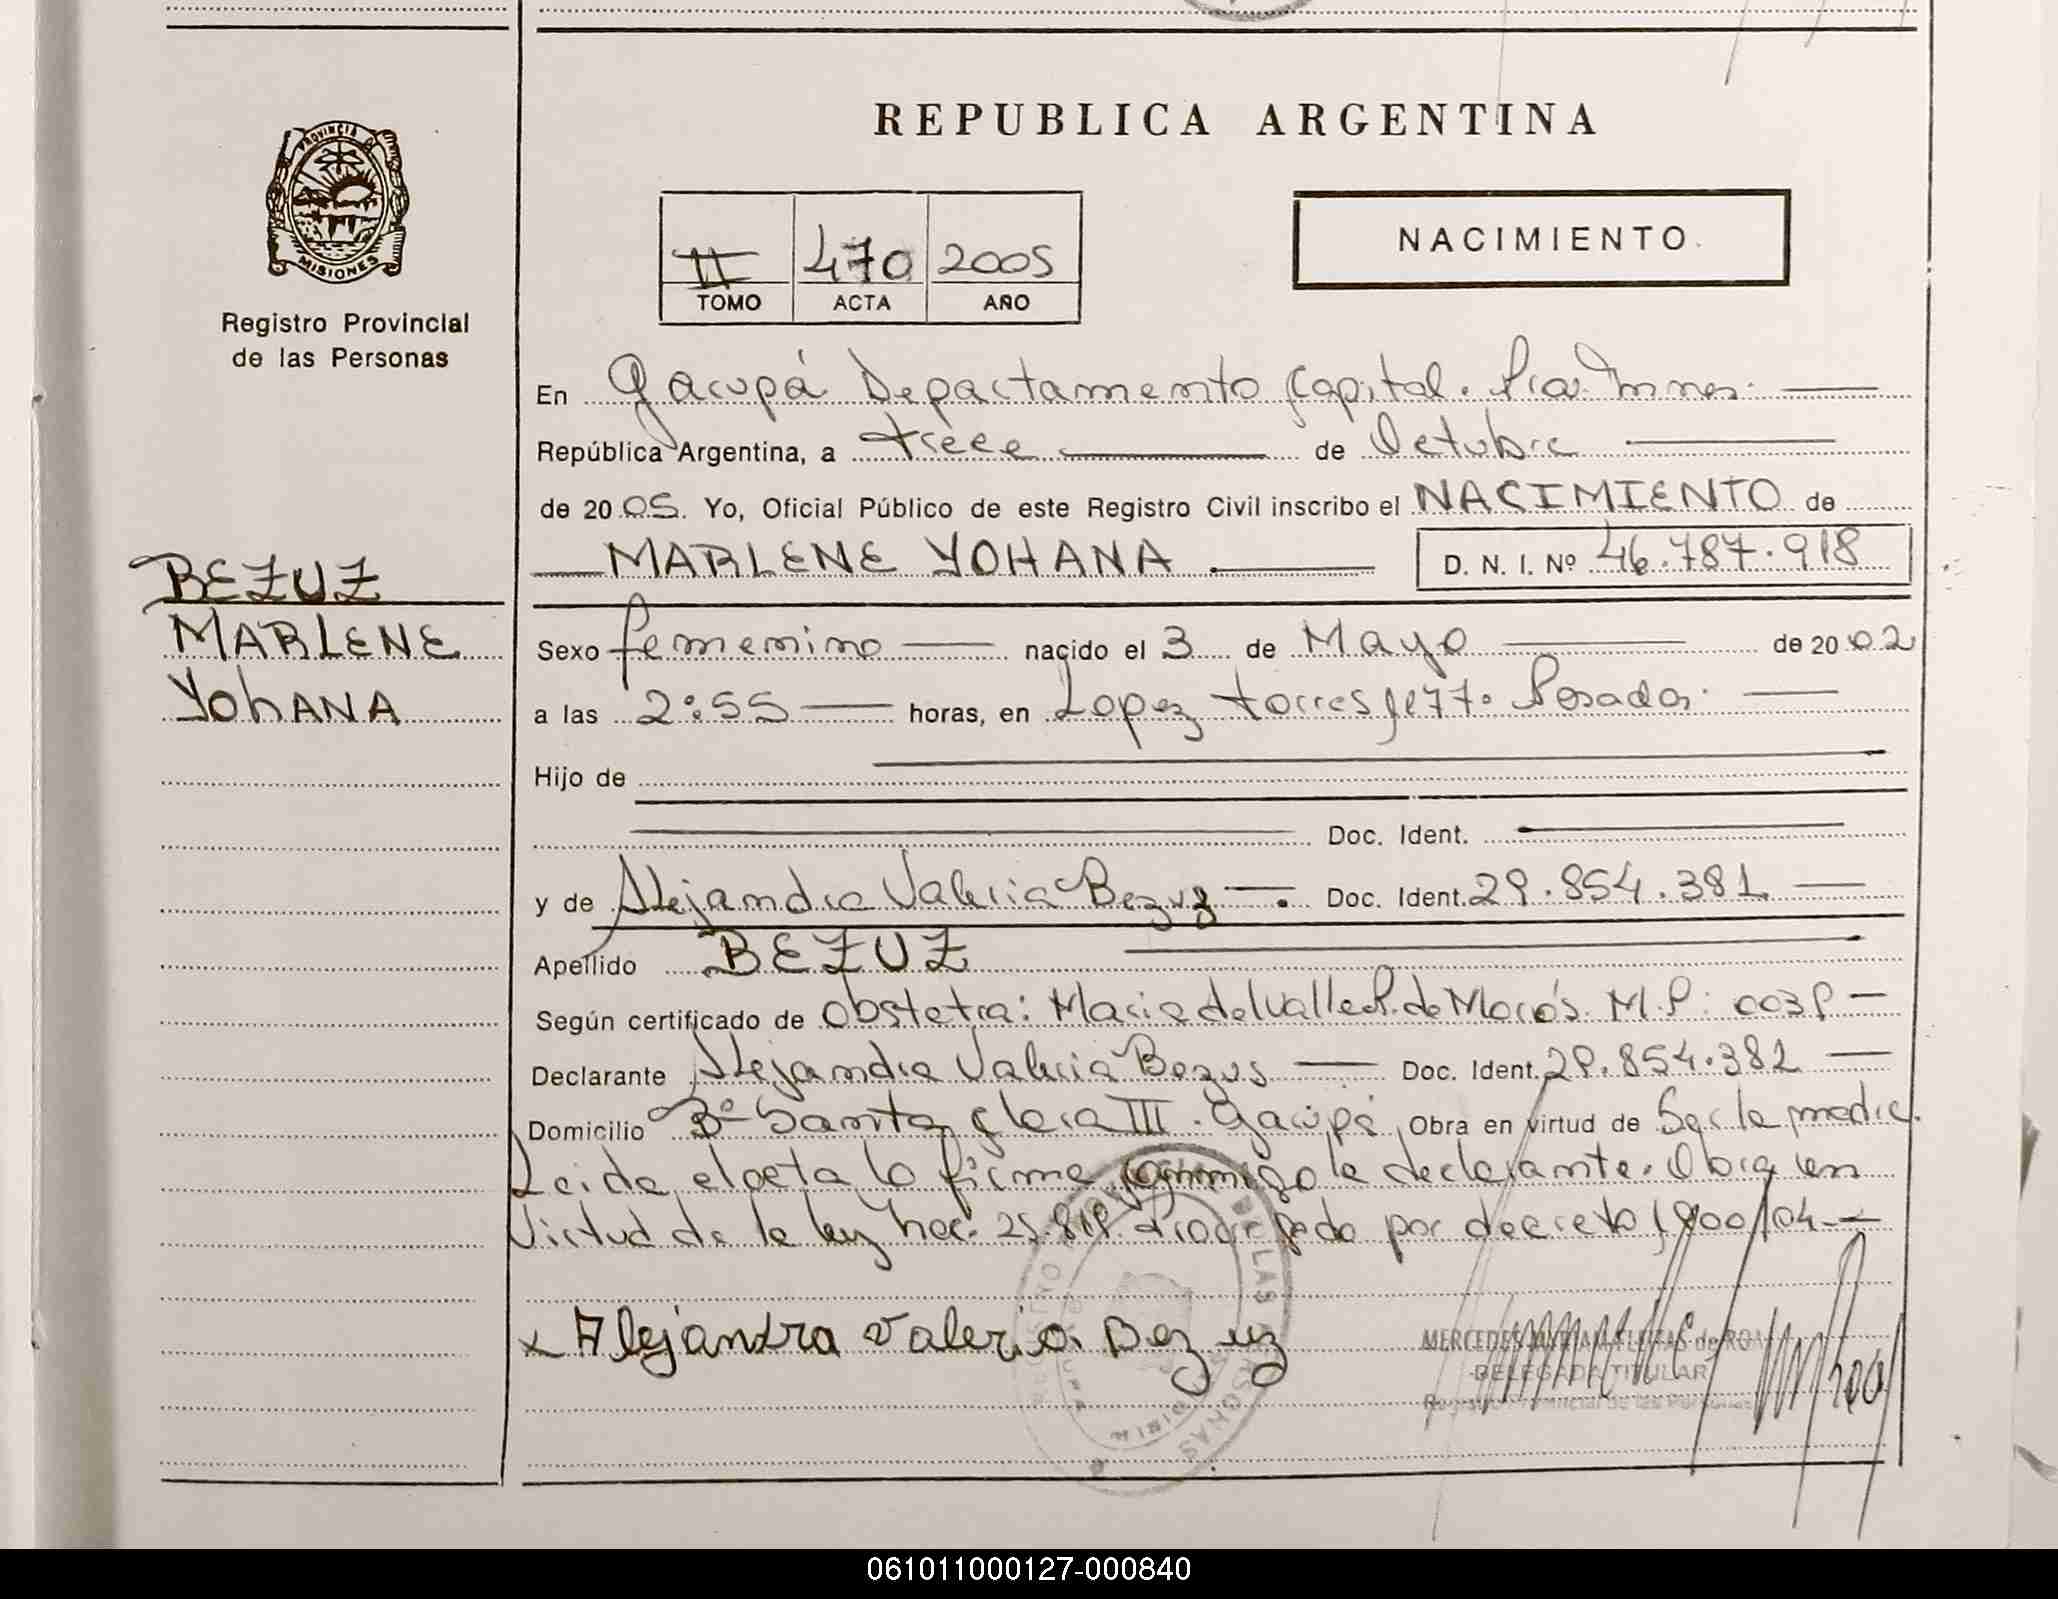 REPUBLICA ARGENTINA
PROVINCIA
MISIONES
Registro Provincial
de las Personas
II 470 2005
TOMO ACTA AÑO
NACIMIENTO
En Garupá Departamento Capital. Pcia. Mnes.
República Argentina, a trece de Octubre
de 2005. Yo, Oficial Público de este Registro Civil inscribo el NACIMIENTO de
MARLENE YOHANA D. N. I. Nº 46.787.918
BEZUZ
MARLENE
YOHANA
Sexo femenino nacido el 3 de Mayo de 2002
a las 2:55 horas, en Lopez torres 1177. Posadas.
Hijo de
Doc. Ident.
y de Alejandra Valeria Bezuz Doc. Ident. 29.854.381
Apellido BEZUZ
Según certificado de obstetra: Maria del Valle de M.P: 0039
Declarante Alejandra Valeria Bezus Doc. Ident. 29.854.382
Domicilio Bº Santa Clara III. Garupá Obra en virtud de Ser la madre.
Leida el acta la firma conmigo la declarante. Obra en
Virtud de la ley nac. 25.819. por decreto 1900/04
x Alejandra Valeria Bezuz
MERCEDES MYRIAM FLEITAS de ROA
DELEGADA TITULAR
Registro Provincial de las Personas
061011000127-000840